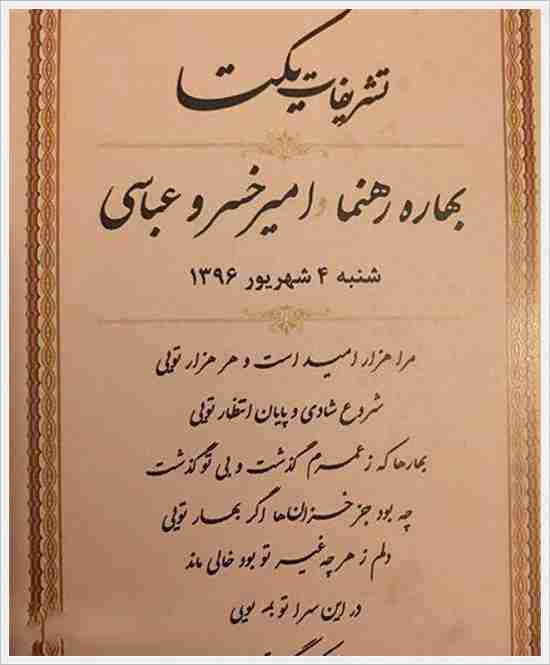 تشریفات یکتا
بهاره رهنما و امیرخسرو عباسی
شنبه ۴ شهریور ۱۳۹۶
مرا هزار امید است و هر هزار تویی
شروع شادی و پایان انتظار تویی
بهارها که ز عمرم گذشت و بی تو گذشت
چه بود جز خزانها اگر بهار تویی
دلم ز هر چه غیر تو بود خالی ماند
در این سرا تو